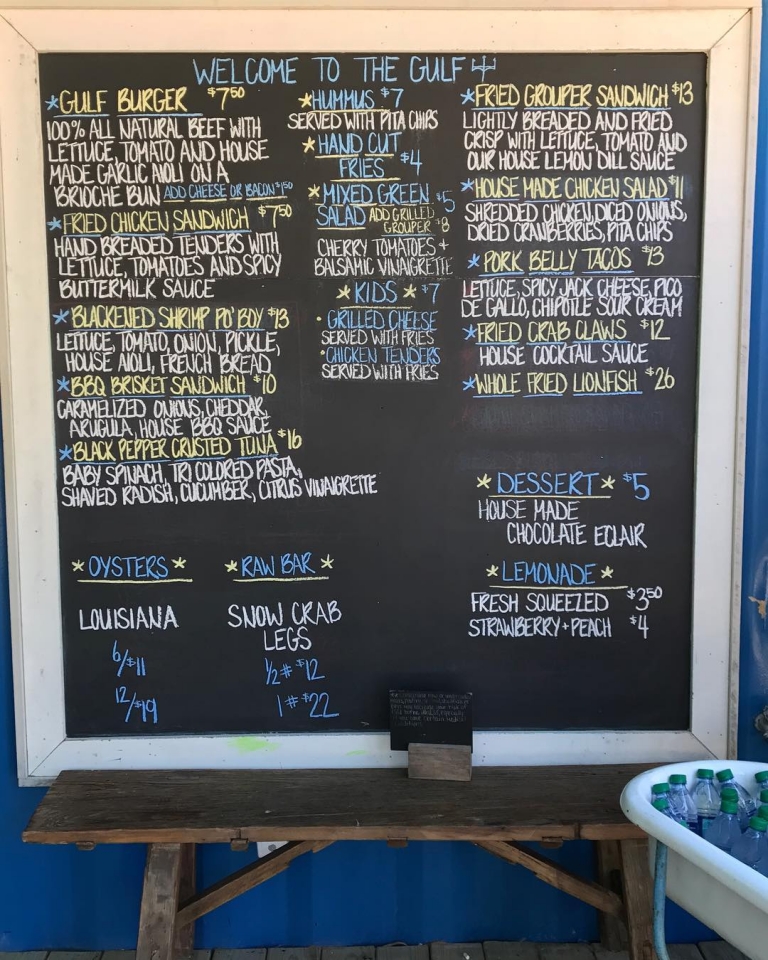 WELCOME TO THE GULF
*GULF BURGER $7.50
100% ALL NATURAL BEEF WITH
LETTUCE, TOMATO AND HOUSE
MADE GARLIC AIOLI ON A
BRIOCHE BUN ADD CHEESE OR BACON $1.50
*FRIED CHICKEN SANDWICH $7.50
HAND BREADED TENDERS WITH
LETTUCE, TOMATOES AND SPICY
BUTTERMILK SAUCE
*BLACKENED SHRIMP PO' BOY $13
LETTUCE, TOMATO, ONION, PICKLE,
HOUSE AIOLI, FRENCH BREAD
*BBQ BRISKET SANDWICH $10
CARAMELIZED ONIONS, CHEDDAR,
ARUGULA, HOUSE BBQ SAUCE
*BLACK PEPPER CRUSTED TUNA $16
BABY SPINACH, TRI COLORED PASTA,
SHAVED RADISH, CUCUMBER, CITRUS VINAIGRETTE
*HUMMUS $7
SERVED WITH PITA CHIPS
*HAND CUT
FRIES $4
*MIXED GREEN $5
SALAD ADD GRILLED
GROUPER $8
CHERRY TOMATOES +
BALSAMIC VINAIGRETTE
*KIDS* $7
• GRILLED CHEESE
SERVED WITH FRIES
• CHICKEN TENDERS
SERVED WITH FRIES
*FRIED GROUPER SANDWICH $13
LIGHTLY BREADED AND FRIED
CRISP WITH LETTUCE, TOMATO AND
OUR HOUSE LEMON DILL SAUCE
*HOUSE MADE CHICKEN SALAD $11
SHREDDED CHICKEN, DICED ONIONS,
DRIED CRANBERRIES, PITA CHIPS
*PORK BELLY TACOS $13
LETTUCE, SPICY JACK CHEESE, PICO
DE GALLO, CHIPOTLE SOUR CREAM
*FRIED CRAB CLAWS $12
HOUSE COCKTAIL SAUCE
*WHOLE FRIED LIONFISH $26
*DESSERT* $5
HOUSE MADE
CHOCOLATE ECLAIR
*LEMONADE*
FRESH SQUEEZED $3.50
STRAWBERRY + PEACH $4
*OYSTERS*
LOUISIANA
6/$11
12/$19
*RAW BAR*
SNOW CRAB
LEGS
1/2# $12
1# $22